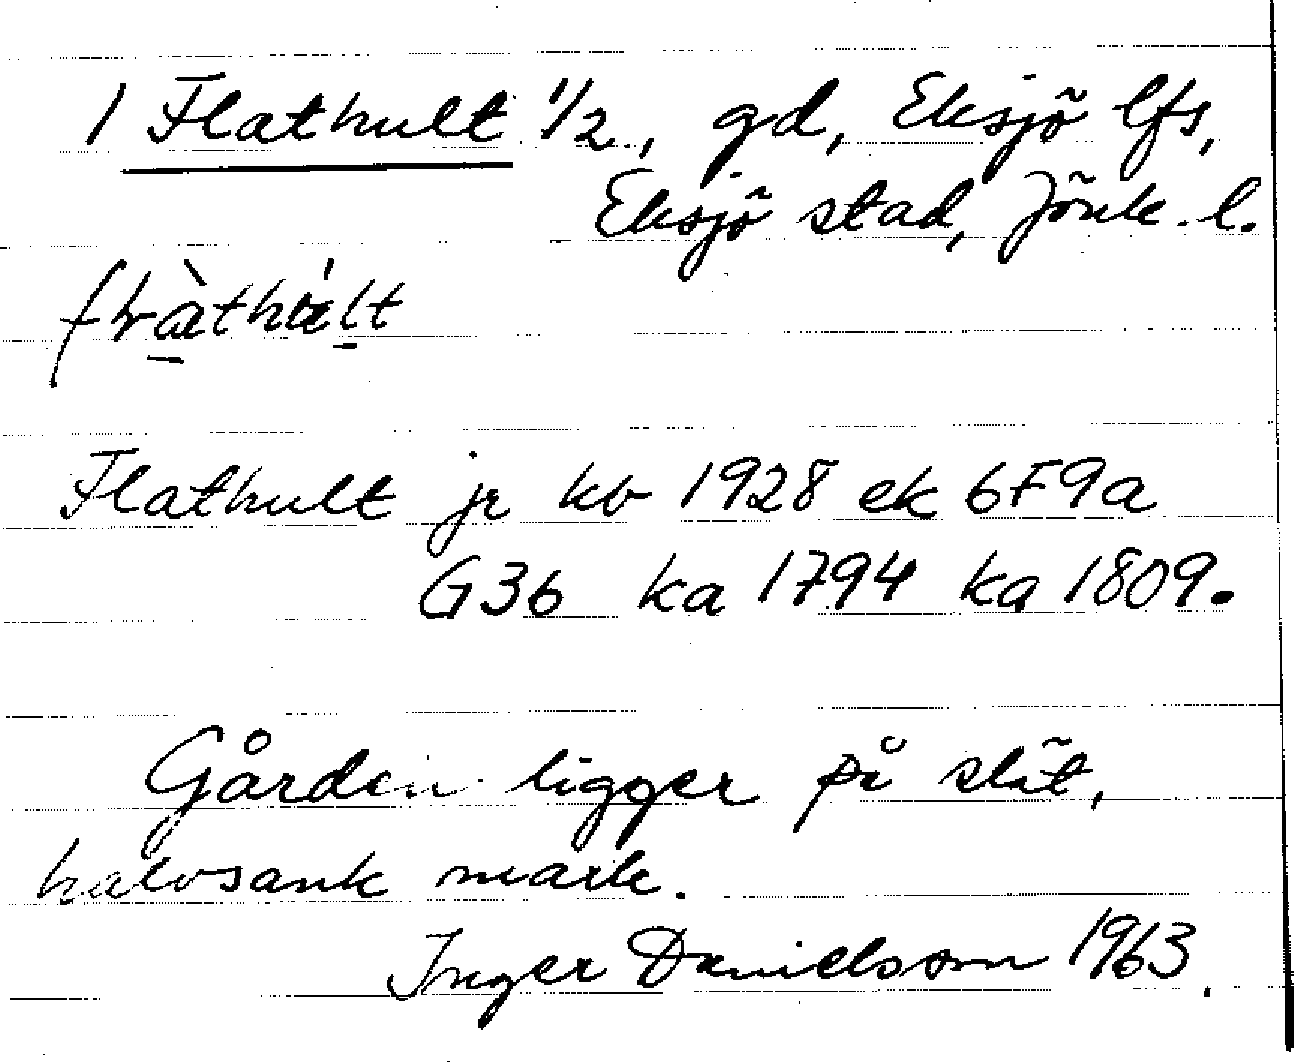 1 Flathult 1/2, gd, Eksjö lfs,
Eksjö stad, Jönk. l.
Flathult jr kb 1928 ek 6F9a
G36 ka 1794 ka 1809.
Gården ligger på slät,
halvsank mark.
Inger Danielsson 1963.